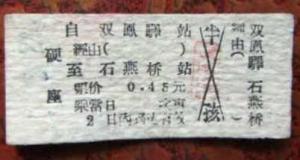 自双鳳驛站
經由( )
至石燕桥站
硬座
票价0.45元
票當日
2日内
半孩
双鳳驛
石燕桥
經由( )